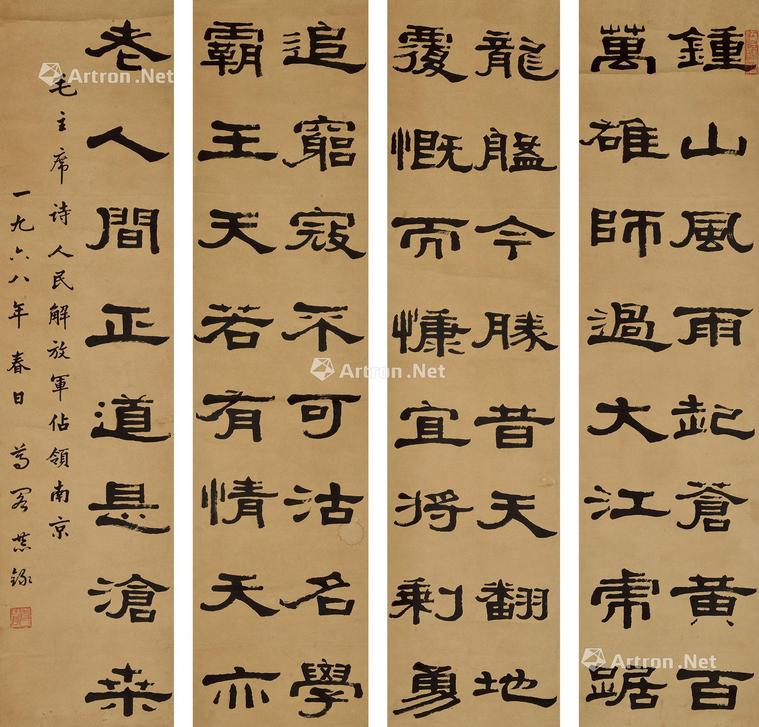 鍾山風雨起蒼黃百
萬雄師過大江虎踞
龍盤今勝昔天翻地
覆慨而慷宜將剩勇
追窮寇不可沽名學
霸王天若有情天亦
老人間正道是滄桒
毛主席诗人民解放軍佔領南京
一九六八年春日 恭錄
Artron.Net
Artron.Net
Artron.Net